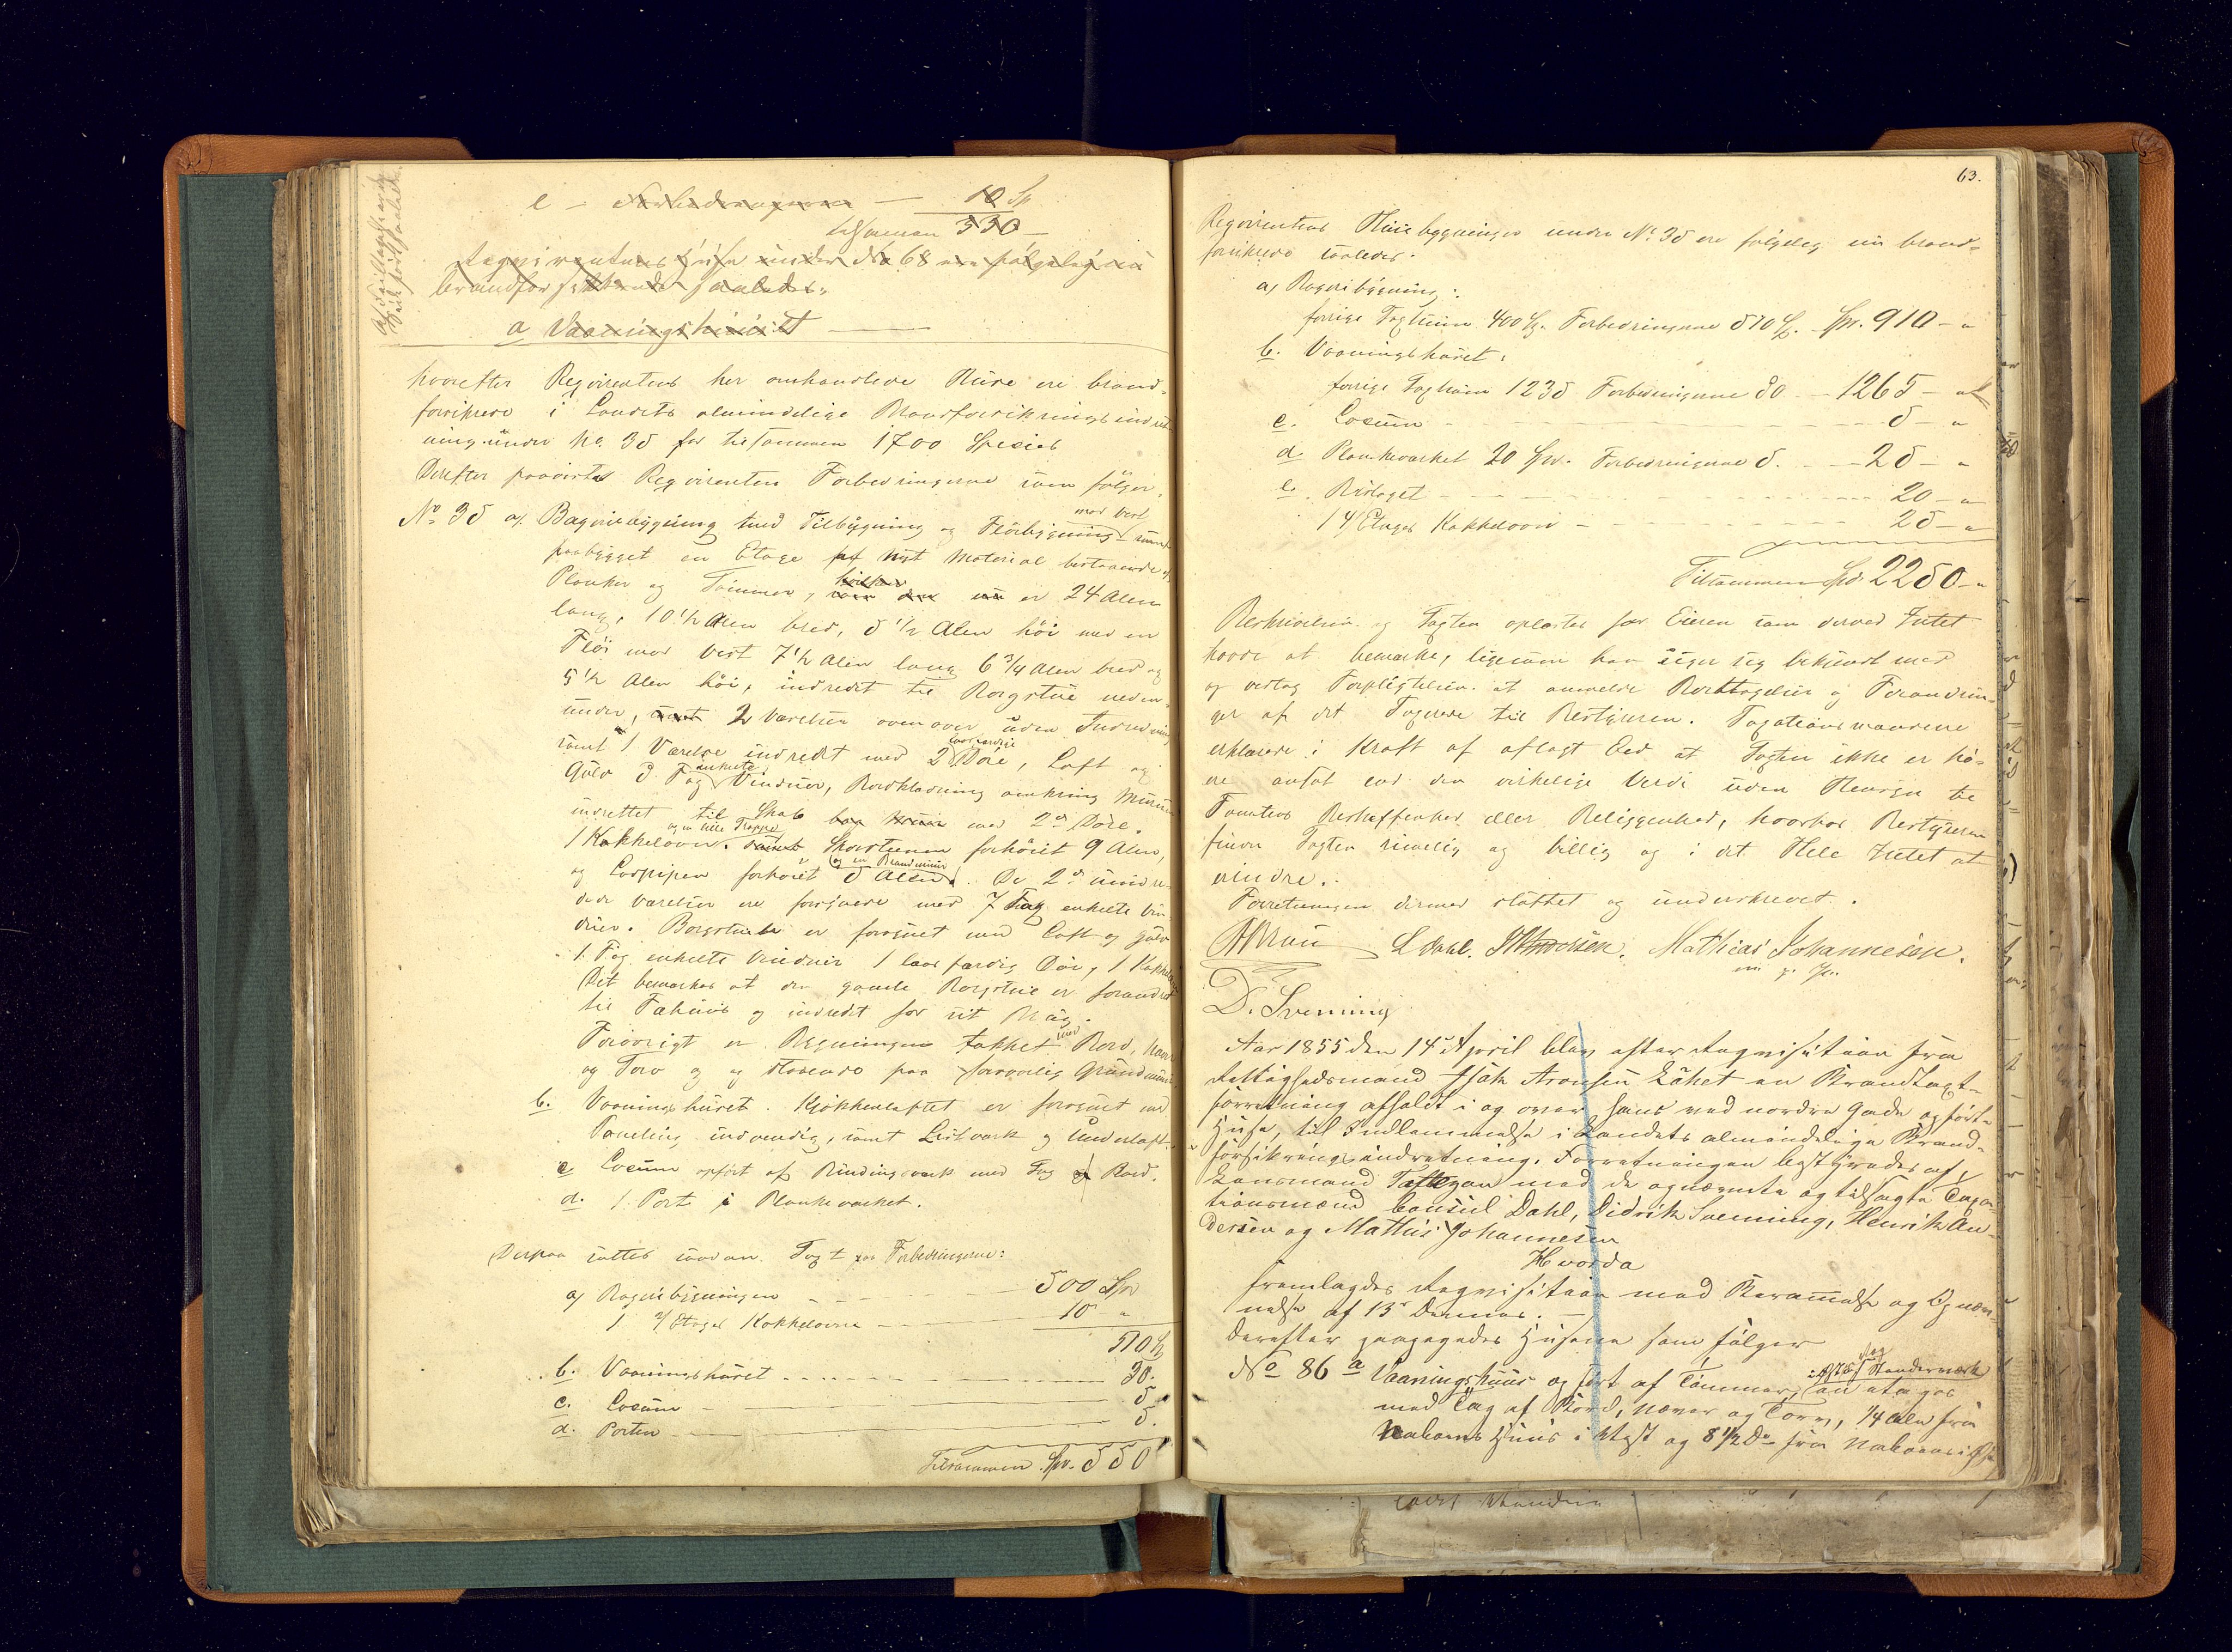 e - Forbedringerne — 10 Sp
tilsammen 530 —
Reqvirentens Huse under No 68 ere følgelig nu
brandforsikkrede saaledes:
a Vaaningshuset —
hvorefter Reqvirentens her omhandlede Huse ere brand-
forsikrede i Landets almindelige Brandforsikringsindret-
ning under No. 35 for tilsammen 1700 Species
Derefter paavistes Reqvirenten Forbedringerne som følger.
mod Vest
No 35 a) Bageribygning med Tilbygning og Fløibygning
paabygget en Etage af nyt Material bestaaende af
Planker og Tømmer, er 24 Alen
lang, 10 1/2 Alen bred, 5 1/2 Alen høi med en
Fløi mod Vest 7 1/2 Alen lang 6 3/4 Alen bred og
5 1/2 Alen høi, indredet til Borgstue neden-
under, 2 Værelser ovenover uden Indredning
laasfærdige
samt 1 Værelse indredet med 2 Døre, Loft og
enkelte
Gulv 3 Fag Vinduer, Bordklædning omkring Muren
indrettet til Skab med 2de Døre.
og en lille Trappe
1 Kakkelovn. Skorstenen forhöiet 9 Alen,
og en Brandmuur
og Lospipen forhöiet 5 Alen. De 2de uindre-
dede Værelser ere forsynede med 7 Fag enkelte Vin-
duer. Borgstuen er forsynet med Loft og Gulv
1 Fag enkelte Vinduer 1 laasfærdig Dør, 1 Kakkelovn
Det bemærkes at den gamle Borgstue er forandret
til Fæhuus og indredet for sit Brug.
med
Forøvrigt er Bygningen tækket Bord, Næver
og Torv og staaende paa forsvarlig Grundmuur.
b. Vaaningshuset. Kjøkkenloftet er forsynet med
Paneling indvendig, samt Listværk og Underloft.
c Locum opført af Bindingsværk med Tag af Bord.
d. 1 Port i Plankeværket.
Derpaa sattes saadan Taxt paa Forbedringerne:
a) Bageribygningen - - - 500 Spd
1 2/Etages Kakkelovn — 10 "
510
b. Vaaningshuset - - - - 30.
c. Locum - 5 "
d. Porten - 5.
Tilsammen Spd. 550
63.
Reqvirentens Huusbygninger under No 35 ere følgelig nu brand-
forsikrede saaledes:
a) Bageribygning:
forrige Taxtsum 400 Sp. Forbedringerne 510 Sp. - Spd. 910 - "
b. Vaaningshuset:
forrige Taxtsum 1235 Forbedringerne 30 - 1265 - "
c. Locum - - - 5 - "
d. Plankeværket 20 Spd. Forbedringerne 5. - - 25 - "
e. Bislaget - - - 20 - "
1 4/Etages Kakkelovn - - - 25 - "
Tilsammen Spd. 2250 - "
Beskrivelsen og Taxten oplæstes for Eieren som derved Intet
havde at bemærke, ligesom han siger sig bekjendt med
og vedtog Forpligtelsen at anmelde Borttagelser og Forandrin-
ger af det Taxerede til Bestyreren. Taxationsmændene
erklærede i Kraft af aflagt Eed at Taxten ikke er hö-
ere ansat end den virkelige Verdi uden Hensyn til
Tomtens Beskaffenhed eller Beliggenhed, hvorhos Bestyreren
finder Taxten rimelig og billig og i det Hele Intet at
erindre.
Forretningen dermed sluttet og underskrevet.
L Dahl. Mathias Johannesen.
D. Svenning
Aar 1855 den 14de April blev efter Reqvisition fra
Rettighedsmand Isak Aronsen Løhet en Brandtaxt-
forretning afholdt i og over hans ved nordre Gade opførte
Huse, til Indlemmelse i Landets almindelige Brand-
forsikringsindretning. Forretningen bestyredes af
Lensmand med de opnævnte og tilsagte Taxa-
tionsmænd Consul Dahl, Didrik Svenning, Henrik An-
dersen og Mathis Johannesen
Hvorda
Fremlagdes Reqvisition med Berammelse og Opnæv-
nelse af 13de Dennes. —
Derefter paavistes Husene som følger
No 86 a Vaaningshuus opført af Tømmer, en Etages
med Tag af Bord, Næver og Torv, 1/4 Alen fra
Naboens Huus i Vest og 8 1/2 Do fra Naboens i